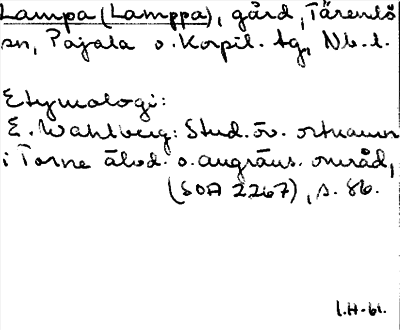 Lampa (Lamppa), gård, Tärendö
sn, Pajala o. Korpil. tg, Nb. l.
Etymologi:
E. Wahlberg: Stud. öv. ortnamn
i Torne älvd. o. angräns. områd,
(SOA 2267), s. 86.
I.H-61.